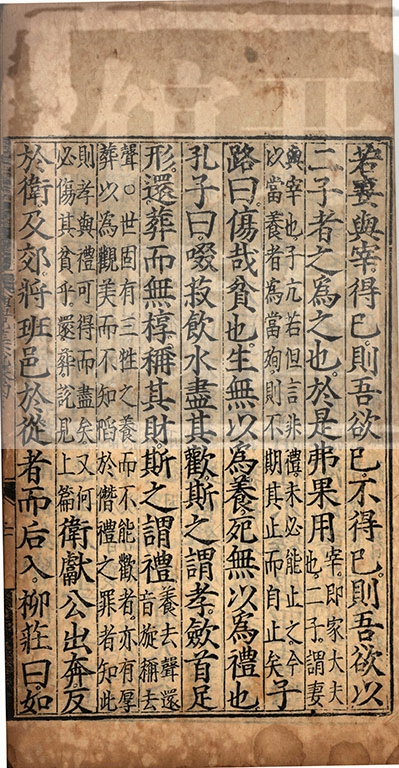 若妻與宰。得已。則吾欲已。不得已。則吾欲以
二子者之為之也。於是弗果用。
宰。即家大夫
也。二子。謂妻
與宰也。子亢若但言非禮。未必能止之。今
以當養者為當殉。則不期其止而自止矣。
子
路曰。傷哉貧也。生無以為養。死無以為禮也。
孔子曰。啜菽飲水盡其歡。斯之謂孝。斂首足
形。還葬而無椁。稱其財。斯之謂禮。
養去聲還
音旋稱去
聲○世固有三牲之養而不能歡者。亦有厚
葬以為觀美而不知陷於僭禮之罪者。知此
則孝與禮可得而盡矣。又何
必傷其貧乎。還葬說見上篇
衛獻公出奔。反
於衛及郊。將班邑於從者而后入。柳莊曰。如